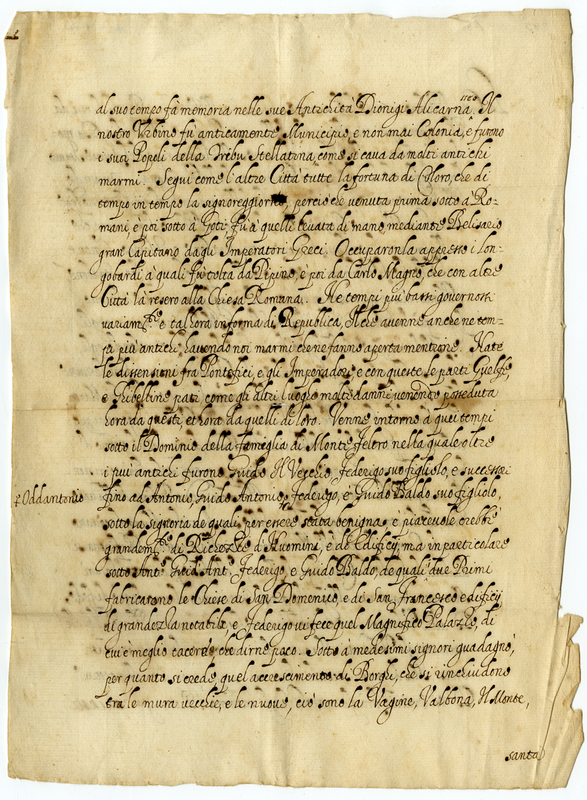 al suo tempo fà memoria nelle sue Antichità Dionigi Alicarnaseo. Il
nostro Urbino fù anticamente Municipio, e non mai Colonia, e furono
i suoi Popoli della Tribu Stellatina, come si cava da molti antichi
marmi. Seguì come l'altre Città tutte la fortuna di coloro, che di
tempo in tempo la signoreggiorno, percioche venuta prima sotto a Ro-
mani, e poi sotto à Goti, fù à quelli levata di mano mediante Belisario
gran Capitano dagli Imperatori Greci. Occuparonla appresso i Lon-
gobardi à quali fù tolta da Pipino, e poi da Carlo Magno, che con altre
Città la resero alla Chiesa Romana. Ne tempi più bassi governossi
variam.te e talhora in forma di Republica, Il che avenne anche ne tem-
pi più antichi, havendo noi marmi che ne fanno aperta mentione. Nate
le dissensioni fra Pontefici, e gli Imperadori, e con queste le parti Guelfe,
e Ghibelline patì, come gli altri luoghi molti danni venendo posseduta
hora da questi, et hora da quelli di loro. Venne intorno a quei tempi
sotto il Dominio della famiglia di Monte Feltro nella quale oltre
i più antichi furono Guido Il Vecchio, Federigo suo figliolo, e successori
fino ad Antonio, Guido Antonio, Federigo, e Guido Baldo suo figliolo,
Oddantonio
sotto la signoria de quali, per essere stata benigna, e piacevole crebbe
grandem.te di Ricchezze d'Huomini, e de Edificij, ma in particolare
sotto Guid'Ant. Federigo, e Guido Baldo, de quali due Primi
fabricarono le Chiese di San Domenico, e di San Francesco edificij
di grandezza notabile, e Federigo vi fece quel Magnifico Palazzo, di
cui è meglio tacere, che dirne poco. Sotto à medesimi signori guadagnò,
per quanto si crede quel accrescimento di Borghi, che si rinchiudono
tra le mura vecchie, e le nuove, ciò sono la Vagine, Valbona, Il Monte,
santa